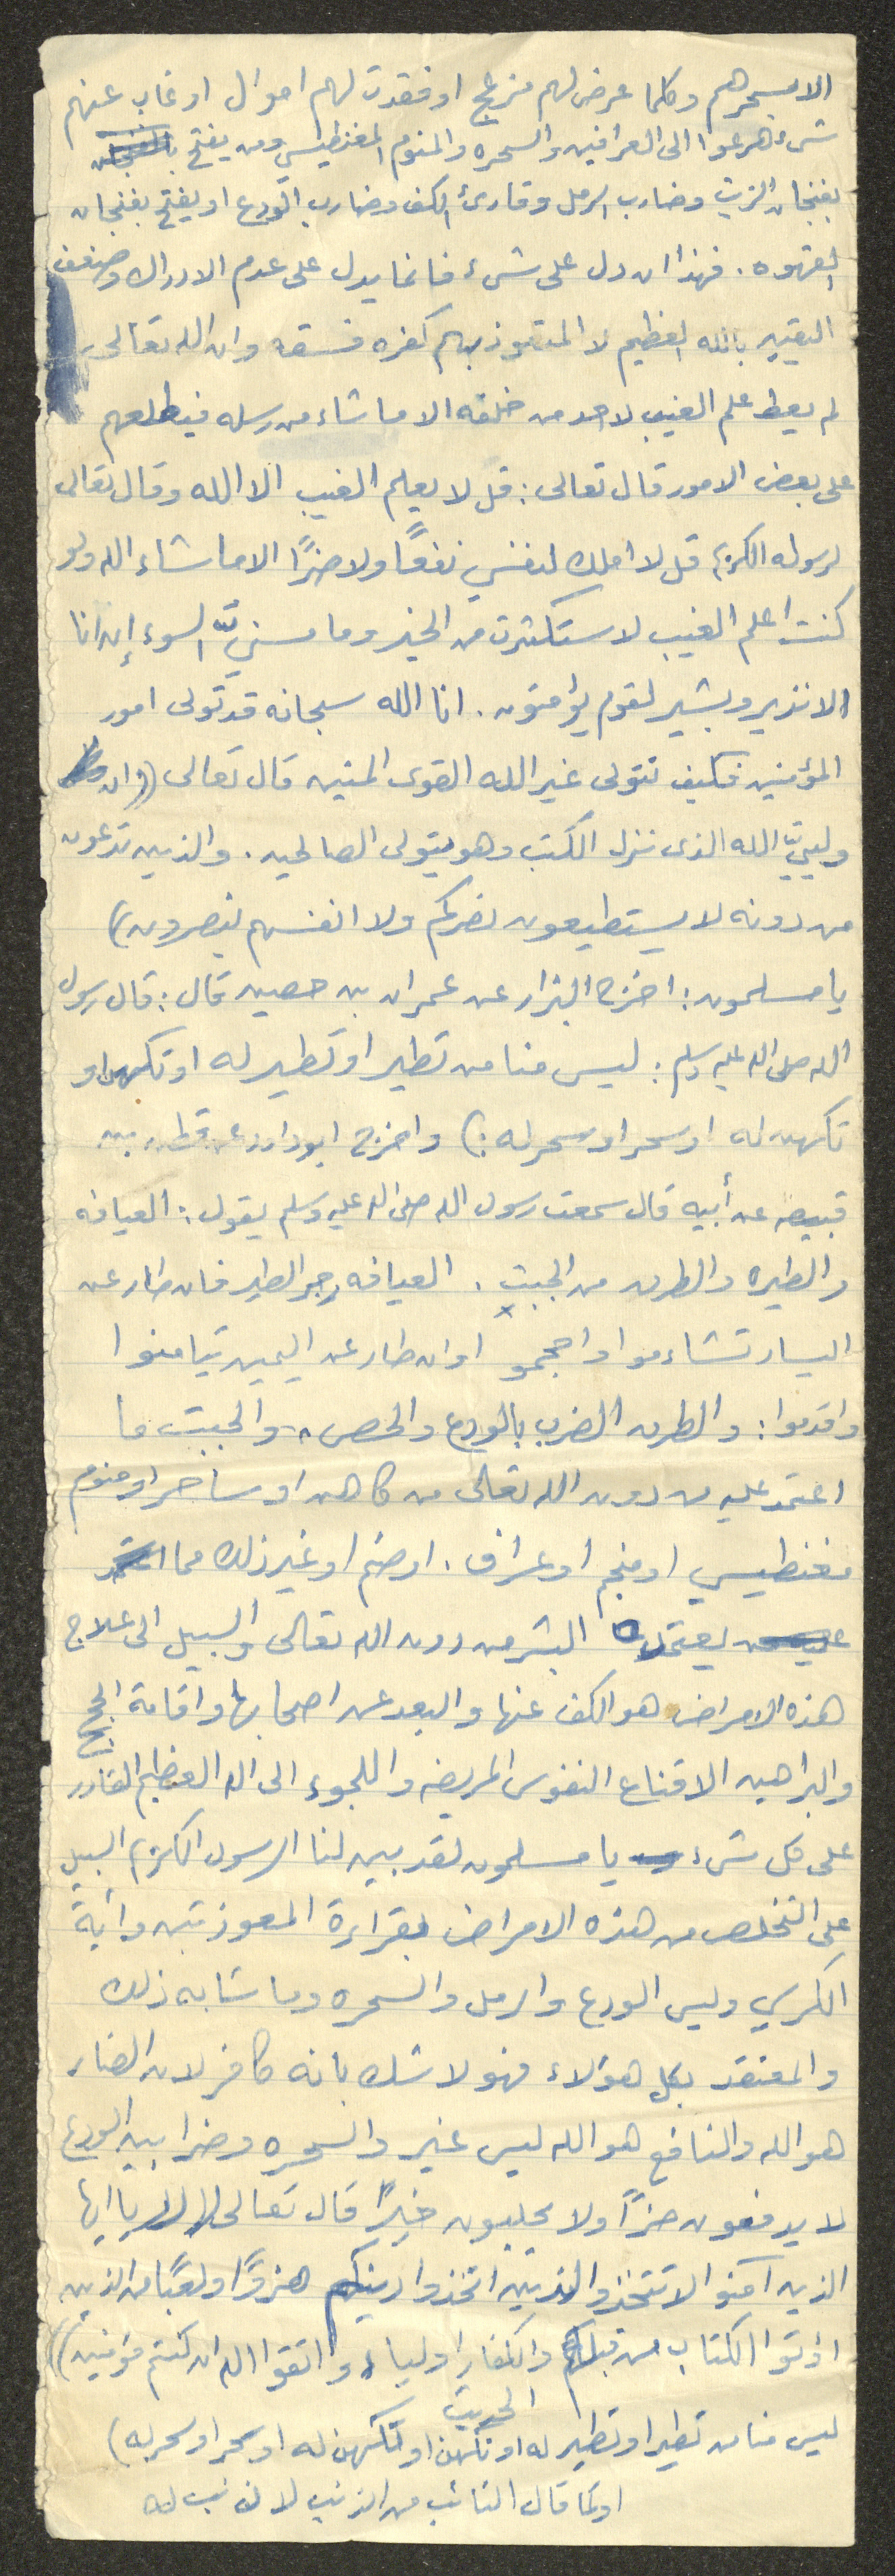 الا بسحرهم وكلما عرض لهم مزعج او فقدت لهم اموال او غاب عنهم
شيء هرعوا الى العرافين والسحره والمنوم المغنطيسي ومن يفتح
بفنجان الزيت وضارب الرمل وقارئ الكف وضارب الودع او يفتح بفنجان
القهوه . فهذا ان دل على شيء فانما يدل على عدم الادراك وضعف
اليقين بالله العظيم لا المتعوذ بهم كفره فسقه وان الله تعالى
لم يعط علم الغيب لاحد من خلقه الا ما شاء من رسله فيطلعهم
على بعض الامور قال تعالى : قل لا يعلم الغيب الا الله وقال تعالى
لرسوله الكريم قل لا املك لنفسي نفعًا ولا ضرًا الا ما شاء الله ولو
كنت اعلم الغيب لاستكثرت من الخير وما مسنيَ السوء إن انا
الا نذير وبشير لقوم يؤمنون . انا الله سبحانه قد تولى امور
المؤمنين فكيف نتولى غير الله القوى المتين قال تعالى (( ان
وليي الله الذى نزل الكتب وهو يتولى الصالحين . والذين تدعون
من دونه لا يستطيعون نصركم ولا انفسهم ينصرون )
يا مسلمون : اخرج البزار عن عمران بن حصين قال : قال رسول
الله صلى الله عليه وسلم : ليس منا من تطير او تطير له او تكهن او
تكهن له او سحر او سحر له : ) واخرج ابو داود عن قطن بن
قبيصه عن أبيه قال سمعت رسول الله صلى الله عليه وسلم يقول : العيافه
والطيره والطرق من الجبت . العيافه زجر الطير فان طار عن
اليسار تشاءموا واحجمو او ان طار عن اليمين تيامنوا
واقدموا : والطرق الضرب بالودع والحصى ، والجبت ما
اعتمد عليه من دون الله تعالى من كاهن او ساحر او منوم
مغنطيسي او منجم او عراف . او صنم او غير ذلك مما
يعتمده البشر من دون الله تعالى والسبيل الى علاج
هذه الامراض هو الكف عنها والبعد عن اصحابها واقامة الحجج
والبراهين لاقناع النفوس المريضه واللجوء الى الله العظيم القادر
على كل شيء يا مسلمون لقد بين لنا الرسول الكريم السبيل
على التخلص من هذه الامراض بقراءة المعوذتين وأية
الكرسي وليس الودع والرمل والسحره وما شابه ذلك
والمعتقد بكل هؤلاء فهو لا شك بانه كافر لان الضار
هو الله والنافع هو الله ليس غير والسحره وضرابين الودع
لا يدفعون ضرًا ولا يجلبون خيرًا قال تعالى يا ايها
الذين امنو لا تتخذو الذين اتخذوا دينكم هزوًا ولعبًا من الذين
اؤتوا الكتاب من قبلكم والكفار اولياء واتقوا الله ان كنتم مؤمنين ))
الحديث
ليس منا من تطير او تطير له او تكهن او تكهن له او سحر او سحر له )
او كما قال التائب من الذنب لا ذنب له